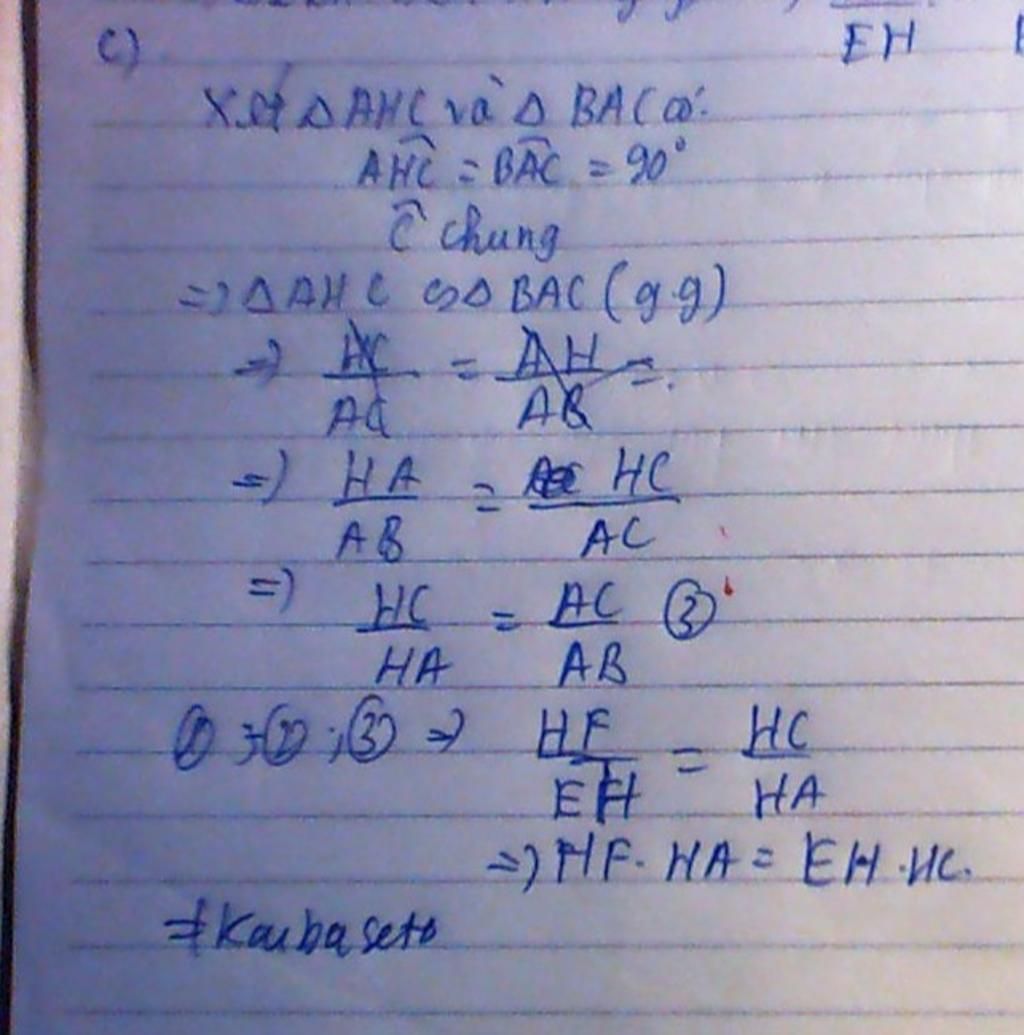 c)
EH
Xét △AHC và △ BAC có:
AHC = BAC = 90°
Ĉ chung
=> △ AHC ∽ △ BAC (g.g)
=> HC/AC = AH/AB =.
=> HA/AB = HC/AC
=> HC/HA = AC/AB ③
①;②;③ => HF/EH = HC/HA
=> HF. HA = EH.HC.
#Kaibaseto